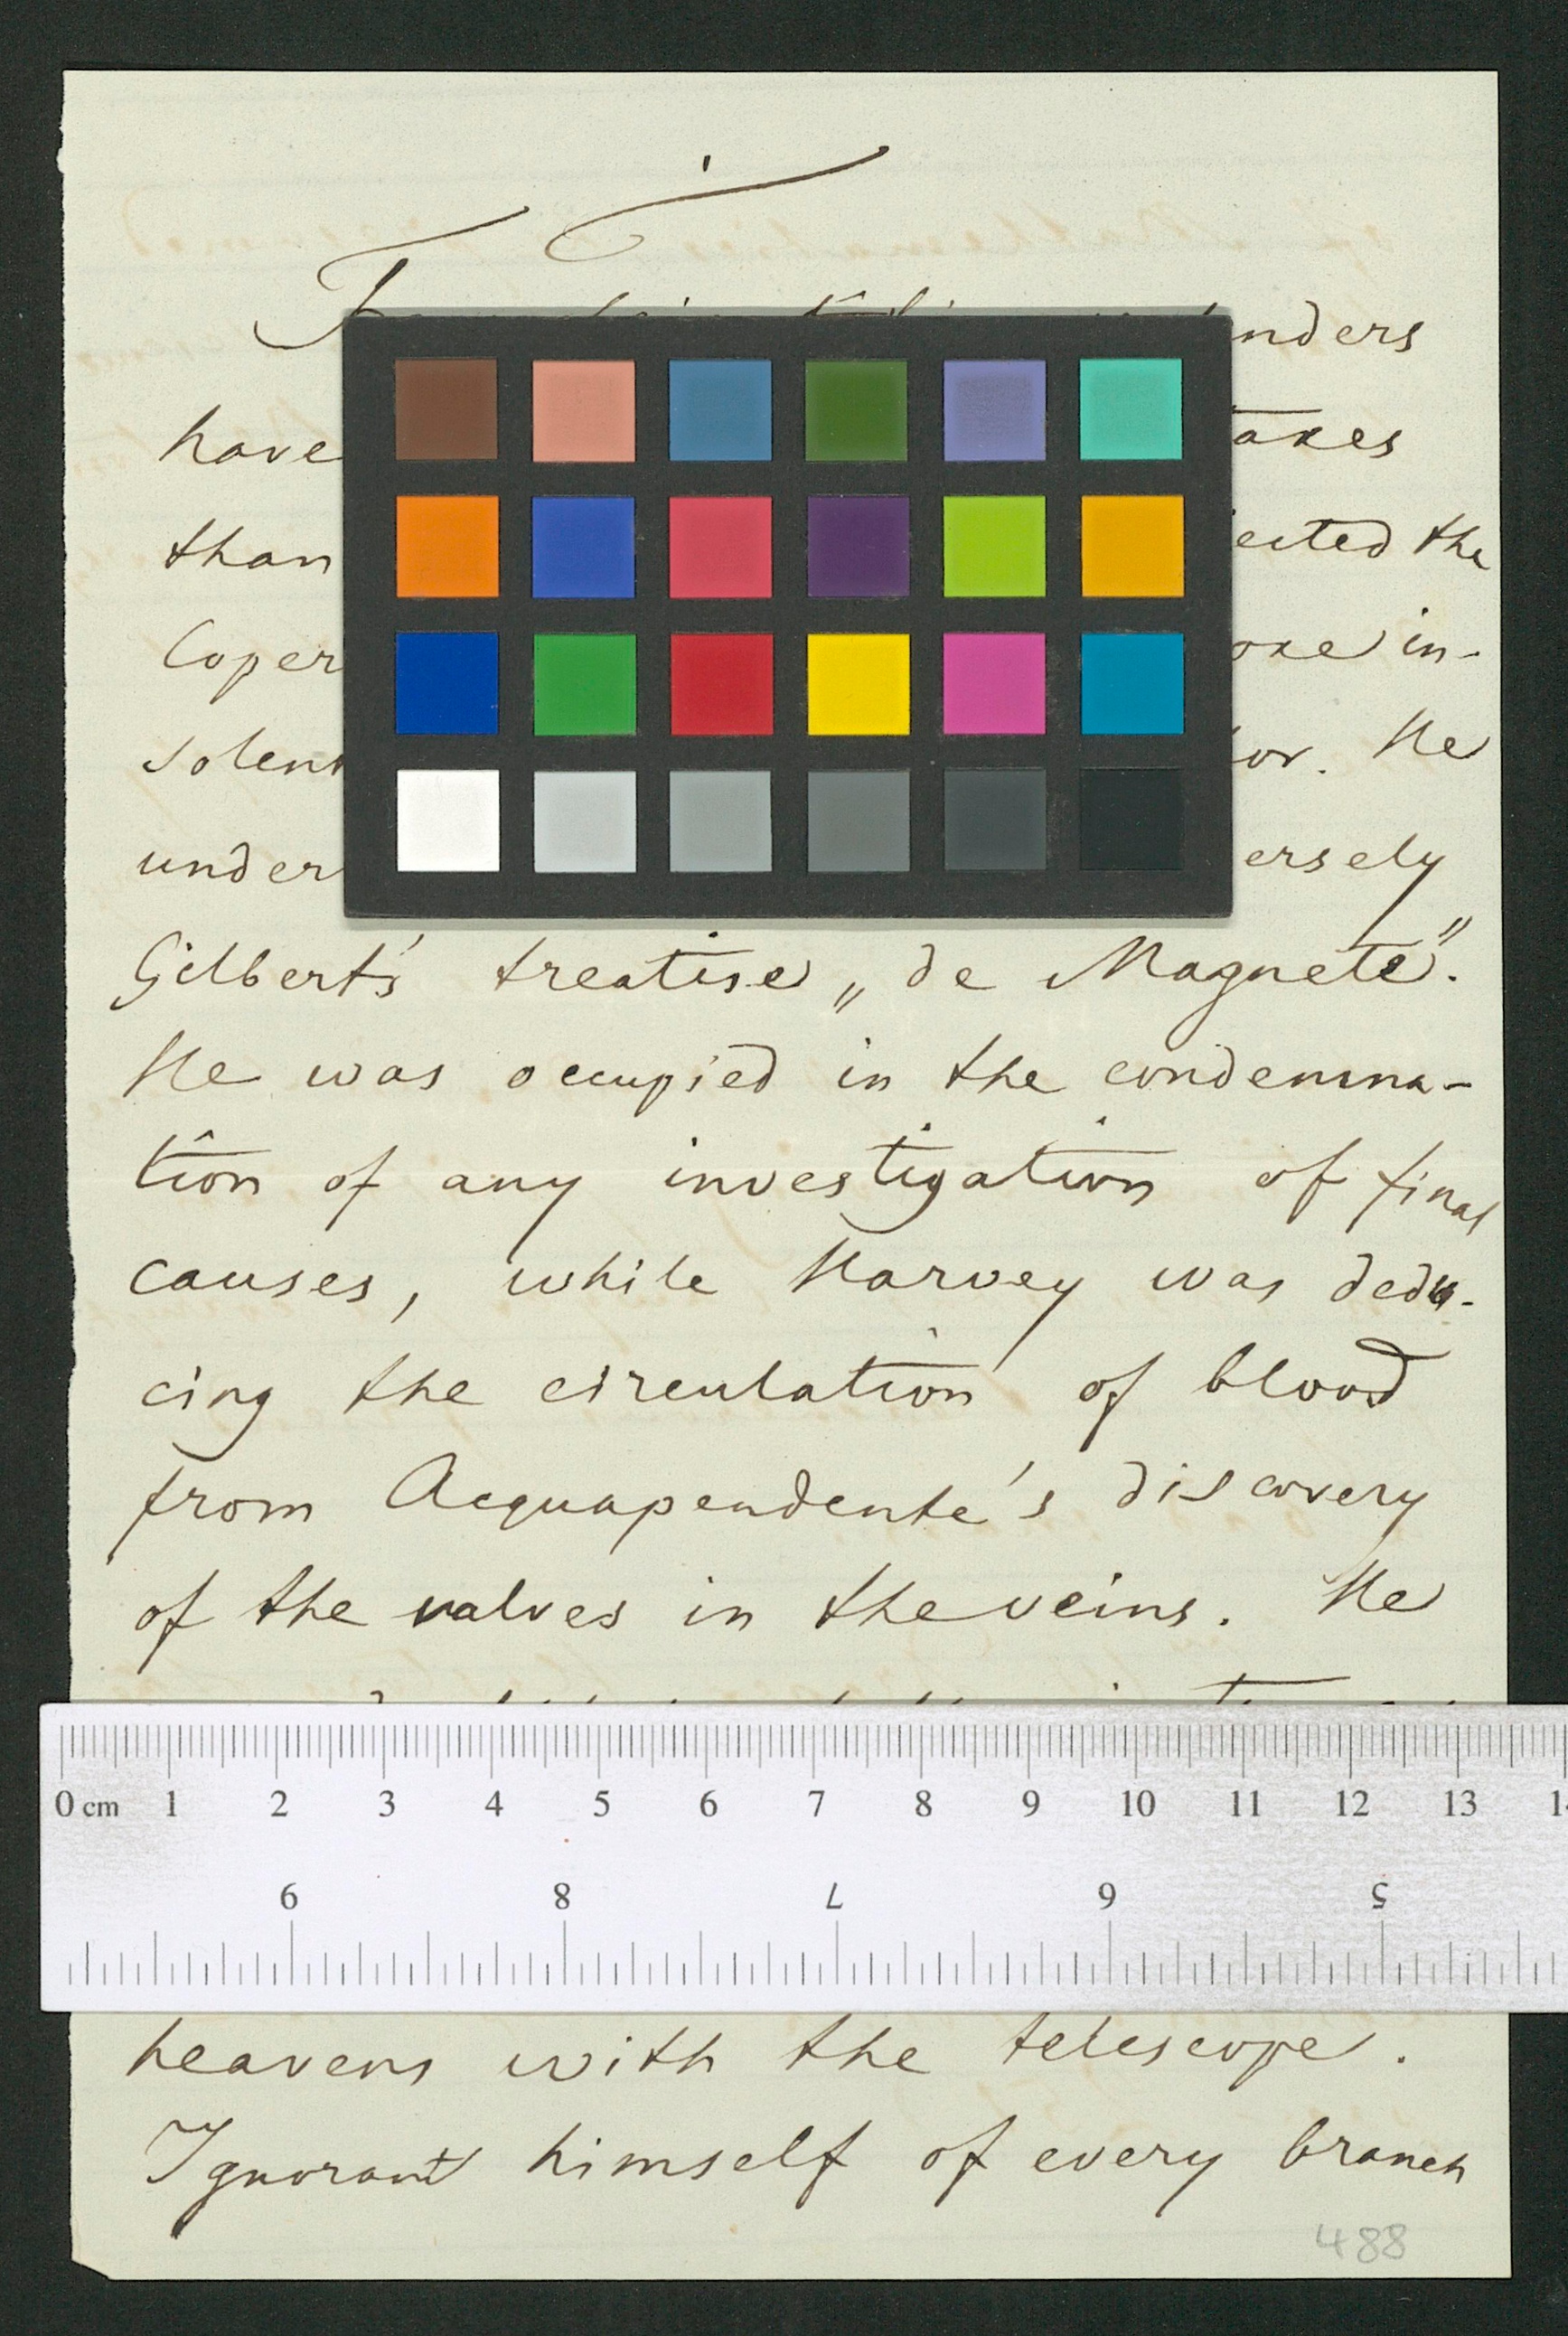 nders
have akes
than ected the
Coper oke in-
solent or. He
under ersely
Gilbert's treatise „de Magnete".
He was occupied in the condemna-
tion of any investigation of final
causes, while Harvey was dedu-
cing the circulation of blood
from Acquapendente's discovery
of the valves in the veins. He
0 cm 1 2 3 4 5 6 7 8 9 10 11 12 13
9 8 7 6 5
heavens with the telescope.
Ignorant himself of every branch
488